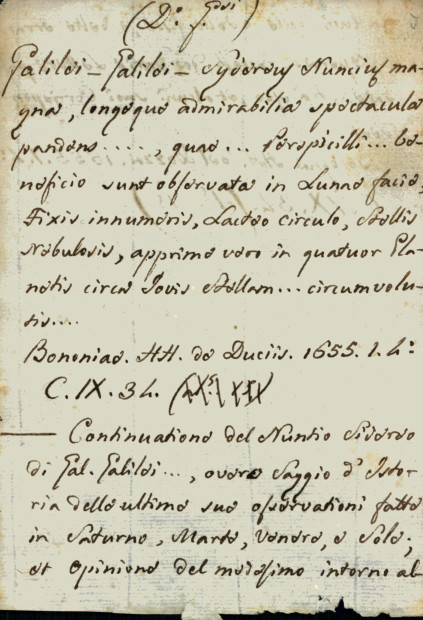 Galilei - Galilei - Sydereus Nuncius ma-
gna, longeque admirabilia spectacula
pandens ...., quae ... Perspicilli ... be-
neficio sunt observata in Lunae facie,
Fixis innumeris, Lacteo circulo, Stellis
Nebulosis, apprime vero in quatuor Pla-
netis circa Iovis Stellam ... circumvolu-
tis ....
Bononiae. HH. de Duciis. 1655. 1. 4°
C. IX. 34.
— Continuatione del Nuntio Sidereo
di Gal. Galilei ..., overo Saggio d'Isto-
ria delle ultime sue osservationi fatte
in Saturno, Marte, Venere, e Sole;
et Opinione del medesimo intorno al-